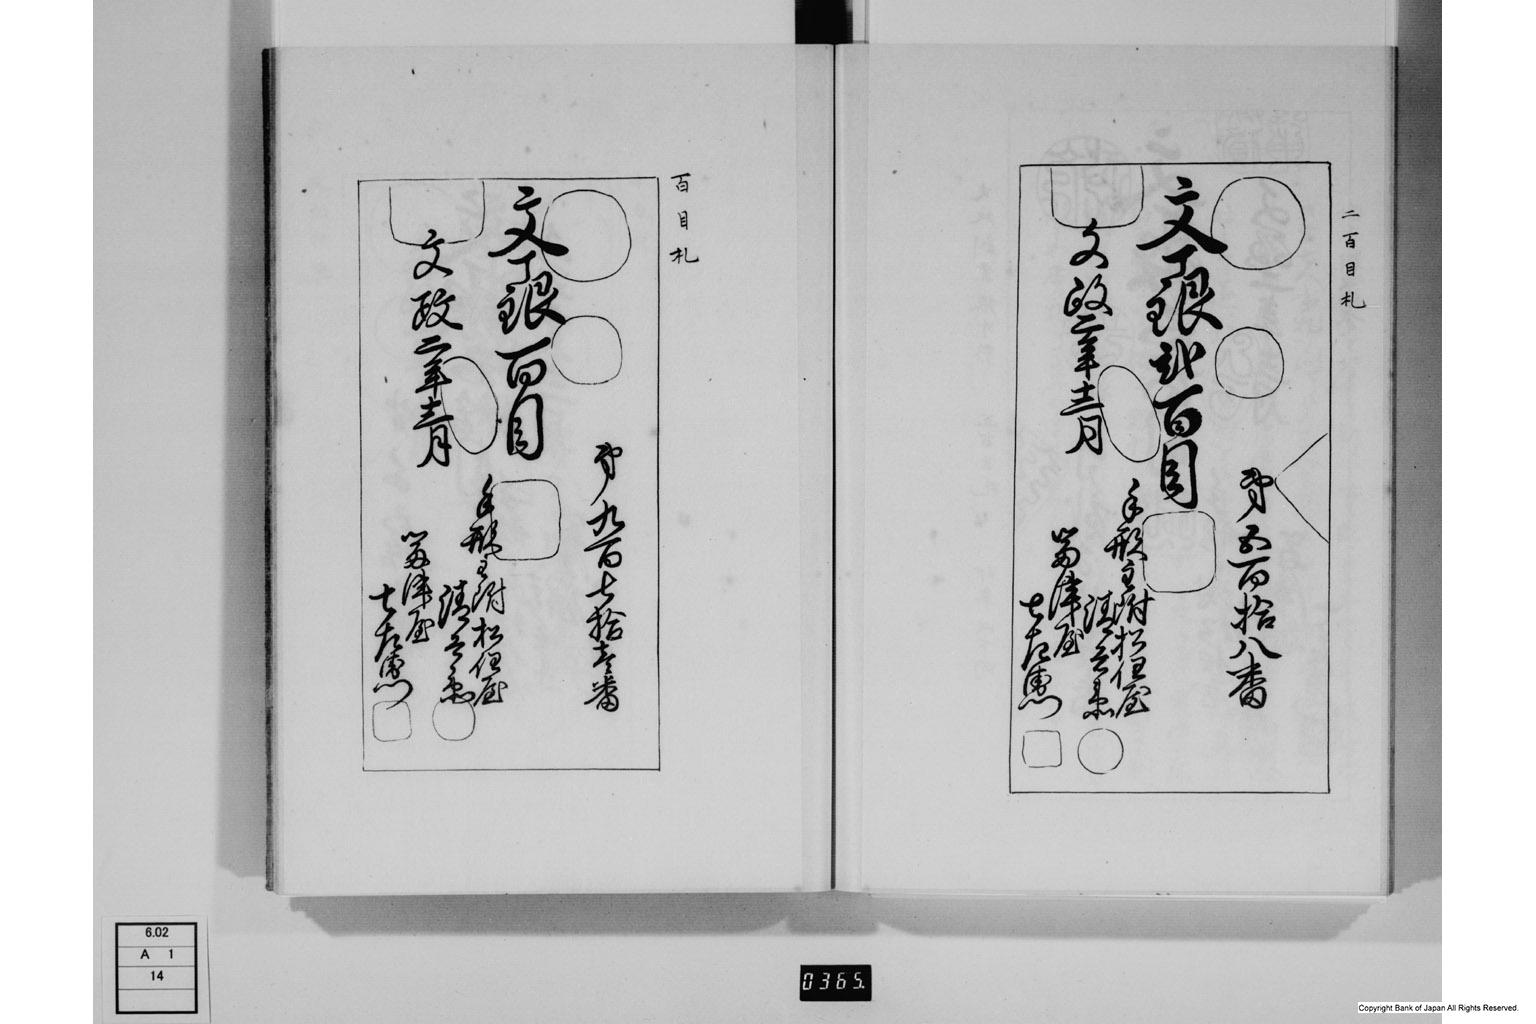 二百目札
文丁銀弐百目
文政二年十二月
第五百拾八番
手形主附松但屋
清兵衛
富津屋
七左衛門
百目札
文丁銀百目
文政二年十二月
第九百七拾壱番
手形主附松但屋
清兵衛
富津屋
七左衛門
6.02
A 1
14
0365.
Copyright Bank of Japan All Rights Reserved.